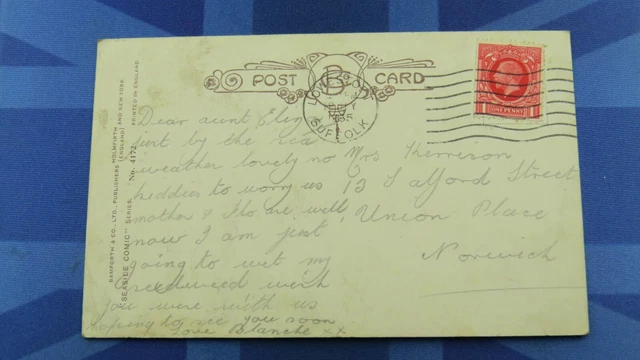 BAMFORTH & CO., LTD., PUBLISHERS HOLMFIRTH (ENGLAND) AND NEW YORK.
"SEASIDE COMIC" SERIES. No. 4172. PRINTED IN ENGLAND
POST CARD
B
LOWESTOFT
SUFFOLK
1 ONE PENNY 1
Dear aunt Eliz
just by the sea
weather lovely no
kiddies to worry us
mother & Flo are well
now I am just
going to wet my
seedweed wish
you were with us
hoping to see you soon
Love Blanche xx
Mrs Kerrison
13 Salford Street
Union Place
Norwich